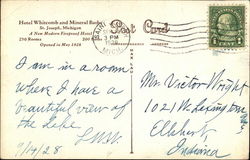 Hotel Whitcomb and Mineral Baths
St. Joseph, Michigan
A New Modern Fireproof Hotel
250 Rooms
Opened in May 1928
Post Card
I am in a room
where I have a
beautiful view of
the Lake
9/14/28
Mr. Victor Wright
1021 W. Lexington
Elkhart
Indiana